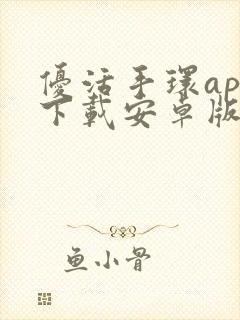 優活手環ap
下載安卓版
鱼小骨